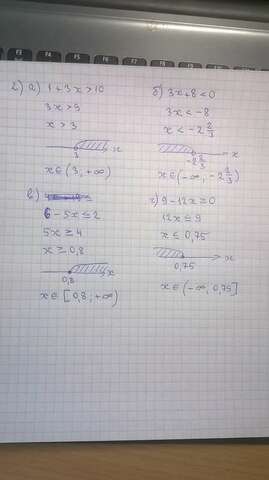 2) а) 1 + 3x > 10
3x > 9
x > 3
3 x
x ∈ (3, +∞)
б) 3x + 8 < 0
3x < -8
x < -2 2/3
-2 2/3 x
x ∈ (-∞, -2 2/3)
в)
6 - 5x ≤ 2
5x ≥ 4
x ≥ 0,8
0,8 x
x ∈ [0,8; +∞)
г) 9 - 12x ≥ 0
12x ≤ 9
x ≤ 0,75
0,75 x
x ∈ (-∞, 0,75]